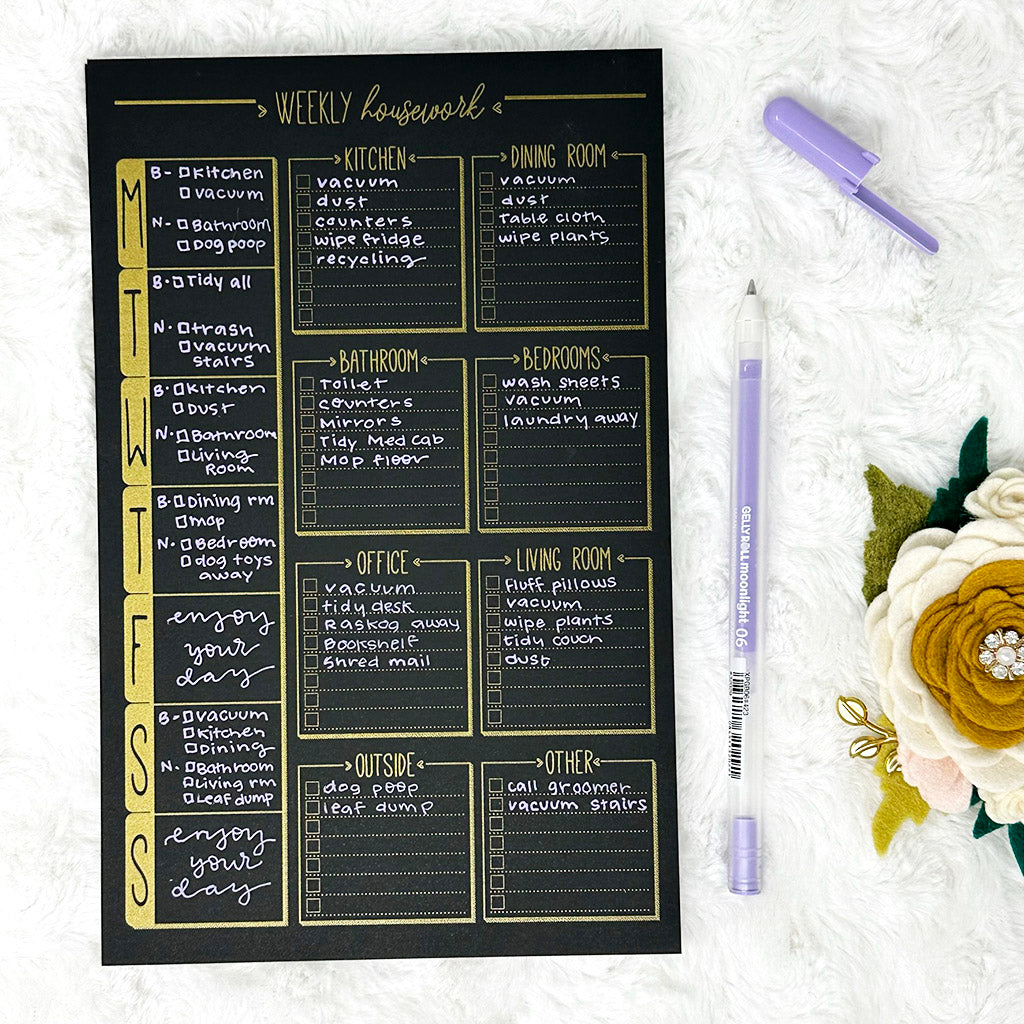 WEEKLY housework
M
B- Kitchen
vacuum
N- Bathroom
Dog poop
T
B- Tidy all
N- trash
vacuum
stairs
W
B- Kitchen
Dust
N- Bathroom
Living
Room
T
B- Dining rm
mop
N- Bedroom
dog toys
away
F
enjoy
your
day
S
B- vacuum
Kitchen
Dining
N- Bathroom
Living rm
Leaf dump
S
enjoy
your
day
KITCHEN
vacuum
dust
counters
wipe fridge
recycling
DINING ROOM
vacuum
dust
Table cloth
wipe plants
BATHROOM
Toilet
counters
Mirrors
Tidy Med cab
Mop floor
BEDROOMS
wash sheets
vacuum
laundry away
OFFICE
vacuum
tidy desk
Raskog away
Bookshelf
Shred mail
LIVING ROOM
Fluff pillows
vacuum
wipe plants
tidy couch
dust
OUTSIDE
dog poop
leaf dump
OTHER
call groomer
vacuum stairs
GELLY ROLL moonlight 06